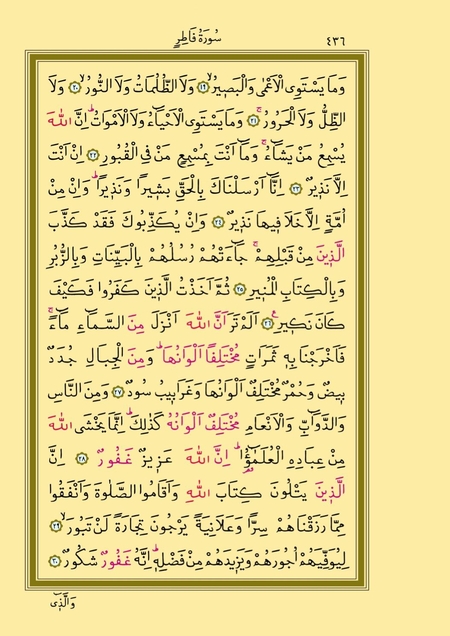 سُورَةُ فَاطِرٍ ٤٣٦
وَمَا يَسْتَوِي الْاَعْمٰى وَالْبَص۪يرُۙ ﴿١٩﴾ وَلَا الظُّلُمَاتُ وَلَا النُّورُۙ ﴿٢٠﴾ وَلَا
الظِّلُّ وَلَا الْحَرُورُۚ ﴿٢١﴾ وَمَا يَسْتَوِي الْاَحْيَٓاءُ وَلَا الْاَمْوَاتُۜ اِنَّ اللّٰهَ
يُسْمِعُ مَنْ يَشَٓاءُۚ وَمَٓا اَنْتَ بِمُسْمِعٍ مَنْ فِي الْقُبُورِ ﴿٢٢﴾ اِنْ اَنْتَ
اِلَّا نَذ۪يرٌ ﴿٢٣﴾ اِنَّٓا اَرْسَلْنَاكَ بِالْحَقِّ بَش۪يرًا وَنَذ۪يرًاۜ وَاِنْ مِنْ
اُمَّةٍ اِلَّا خَلَا ف۪يهَا نَذ۪يرٌ ﴿٢٤﴾ وَاِنْ يُكَذِّبُوكَ فَقَدْ كَذَّبَ
الَّذ۪ينَ مِنْ قَبْلِهِمْۚ جَٓاءَتْهُمْ رُسُلُهُمْ بِالْبَيِّنَاتِ وَبِالزُّبُرِ
وَبِالْكِتَابِ الْمُن۪يرِ ﴿٢٥﴾ ثُمَّ اَخَذْتُ الَّذ۪ينَ كَفَرُوا فَكَيْفَ
كَانَ نَك۪يرِ۟ ﴿٢٦﴾ اَلَمْ تَرَ اَنَّ اللّٰهَ اَنْزَلَ مِنَ السَّمَٓاءِ مَٓاءًۚ
فَاَخْرَجْنَا بِه۪ ثَمَرَاتٍ مُخْتَلِفًا اَلْوَانُهَاۜ وَمِنَ الْجِبَالِ جُدَدٌ
ب۪يضٌ وَحُمْرٌ مُخْتَلِفٌ اَلْوَانُهَا وَغَرَاب۪يبُ سُودٌ ﴿٢٧﴾ وَمِنَ النَّاسِ
وَالدَّوَٓابِّ وَالْاَنْعَامِ مُخْتَلِفٌ اَلْوَانُهُ كَذٰلِكَۜ اِنَّمَا يَخْشَى اللّٰهَ
مِنْ عِبَادِهِ الْعُلَمٰٓؤُ۬اۜ اِنَّ اللّٰهَ عَز۪يزٌ غَفُورٌ ﴿٢٨﴾ اِنَّ
الَّذ۪ينَ يَتْلُونَ كِتَابَ اللّٰهِ وَاَقَامُوا الصَّلٰوةَ وَاَنْفَقُوا
مِمَّا رَزَقْنَاهُمْ سِرًّا وَعَلَانِيَةً يَرْجُونَ تِجَارَةً لَنْ تَبُورَۙ ﴿٢٩﴾
لِيُوَفِّيَهُمْ اُجُورَهُمْ وَيَز۪يدَهُمْ مِنْ فَضْلِه۪ۜ اِنَّهُ غَفُورٌ شَكُورٌ ﴿٣٠﴾
وَالَّذ۪ٓي